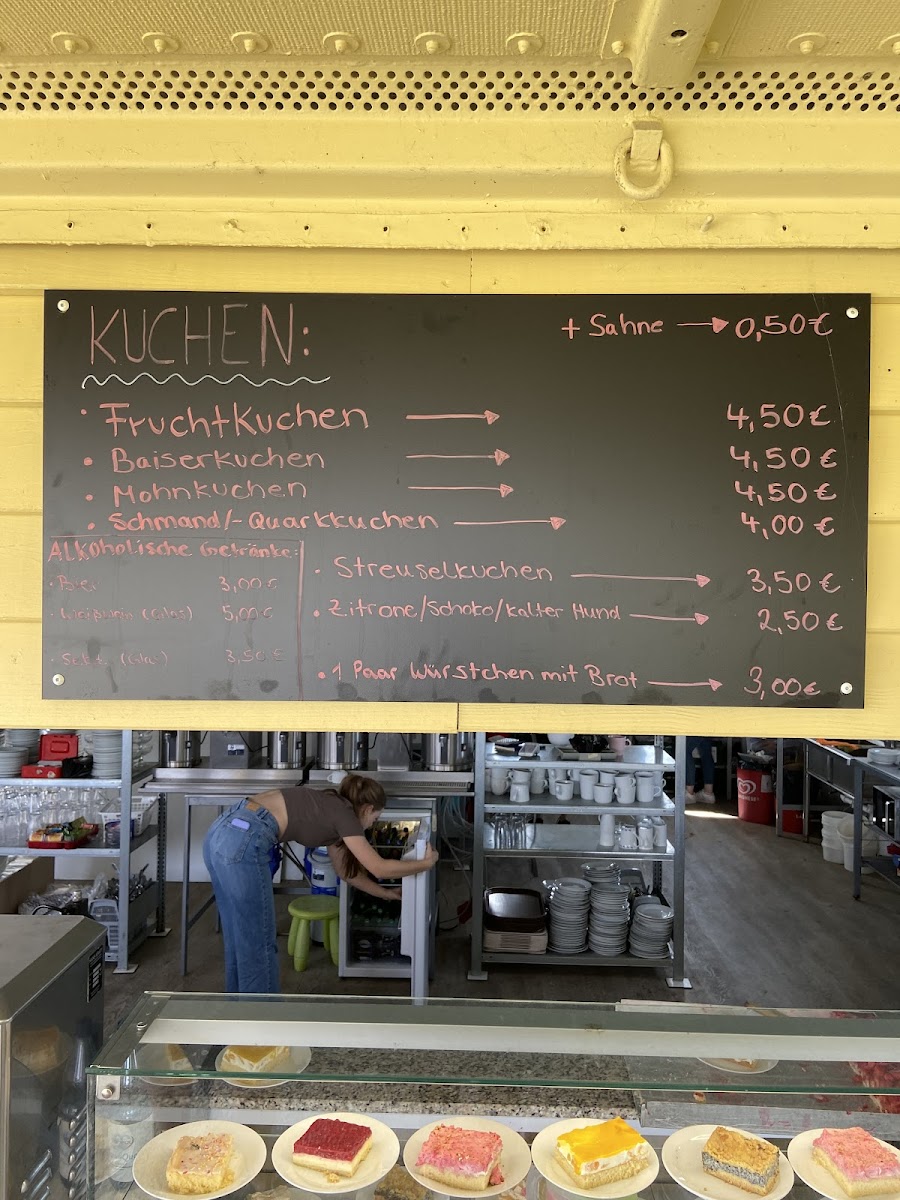 KUCHEN:
+ Sahne → 0,50€
· Fruchtkuchen → 4,50€
· Baiserkuchen → 4,50€
· Mohnkuchen → 4,50€
· Schmand/-Quarkkuchen → 4,00€
Alkoholische Getränke:
· Bier 3,00€
· Weißwein (Glas) 5,00€
· Sekt (Glas) 3,50€
· Streuselkuchen → 3,50€
· Zitrone/Schoko/Kalter Hund → 2,50€
· 1 Paar Würstchen mit Brot → 3,00€